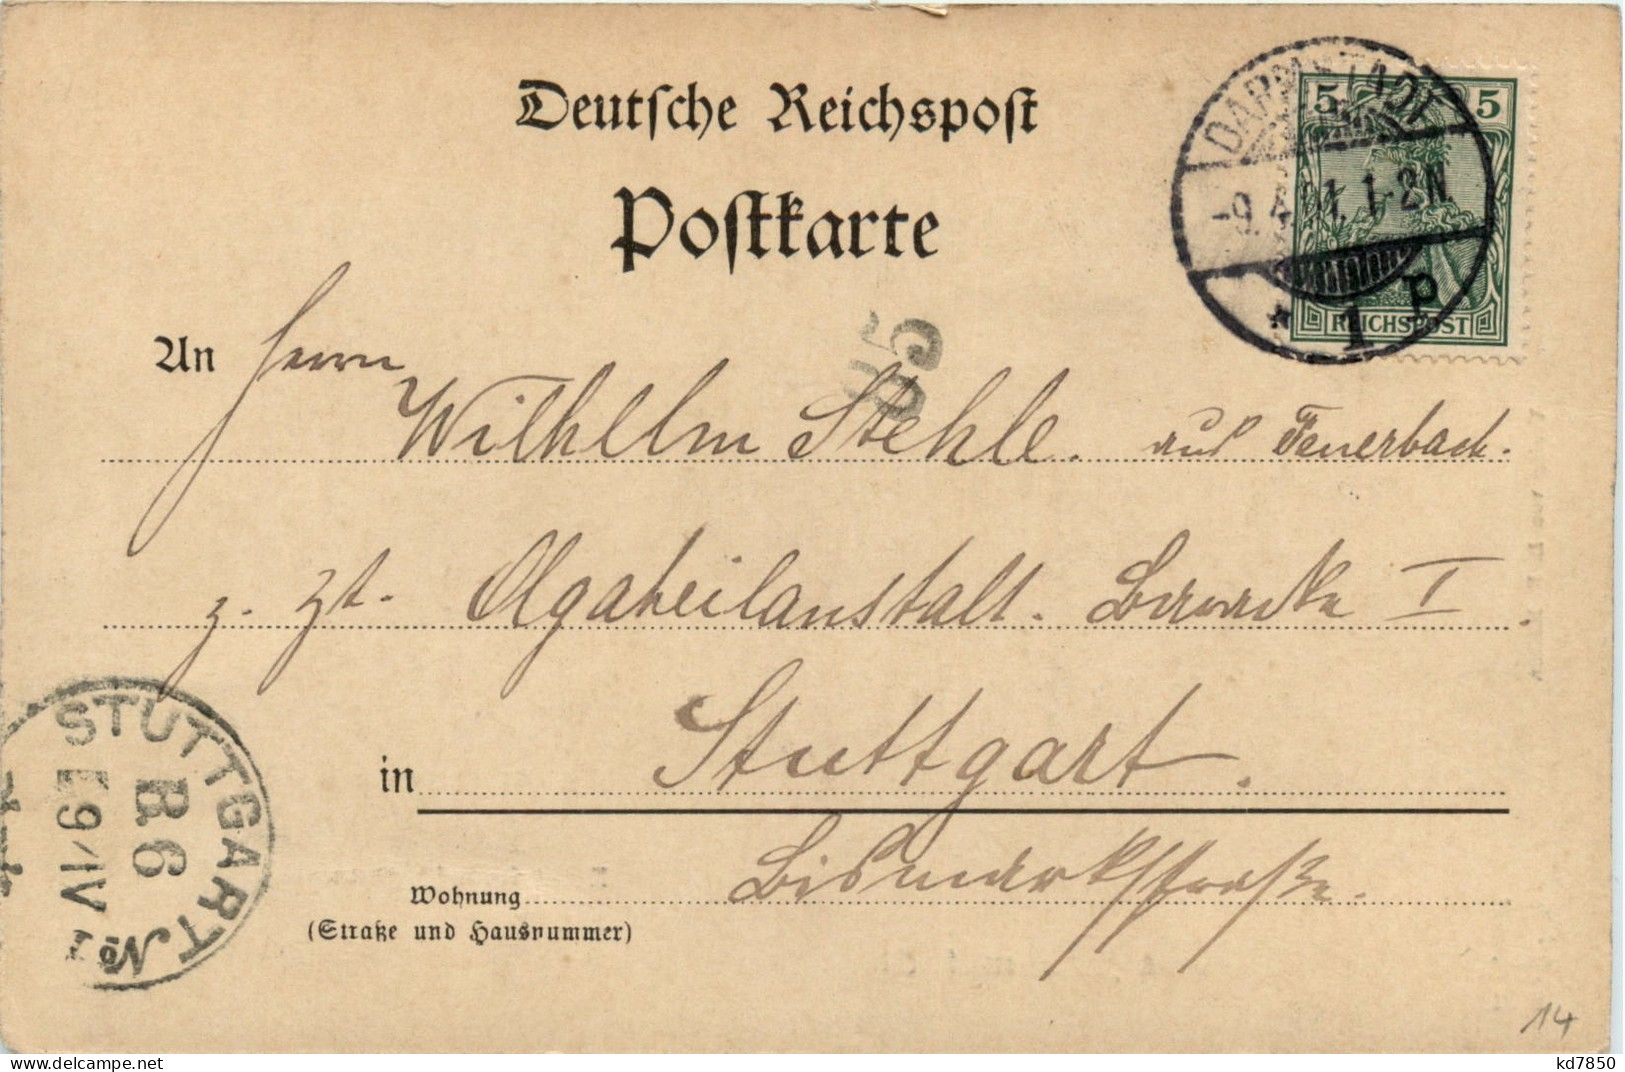 Deutsche Reichspost
Postkarte
DARMSTADT
-9.4.01. 1-2N
* 1 P
5 5
REICHSPOST
An Herrn
Wilhelm Stehle. aus Feuerbach.
z. Zt. Olgaheilanstalt. Baracke I.
in Stuttgart.
Wohnung Bismarkstraße.
(Straße und Hausnummer)
STUTTGART No
B.6
9 IV
14
kd7850